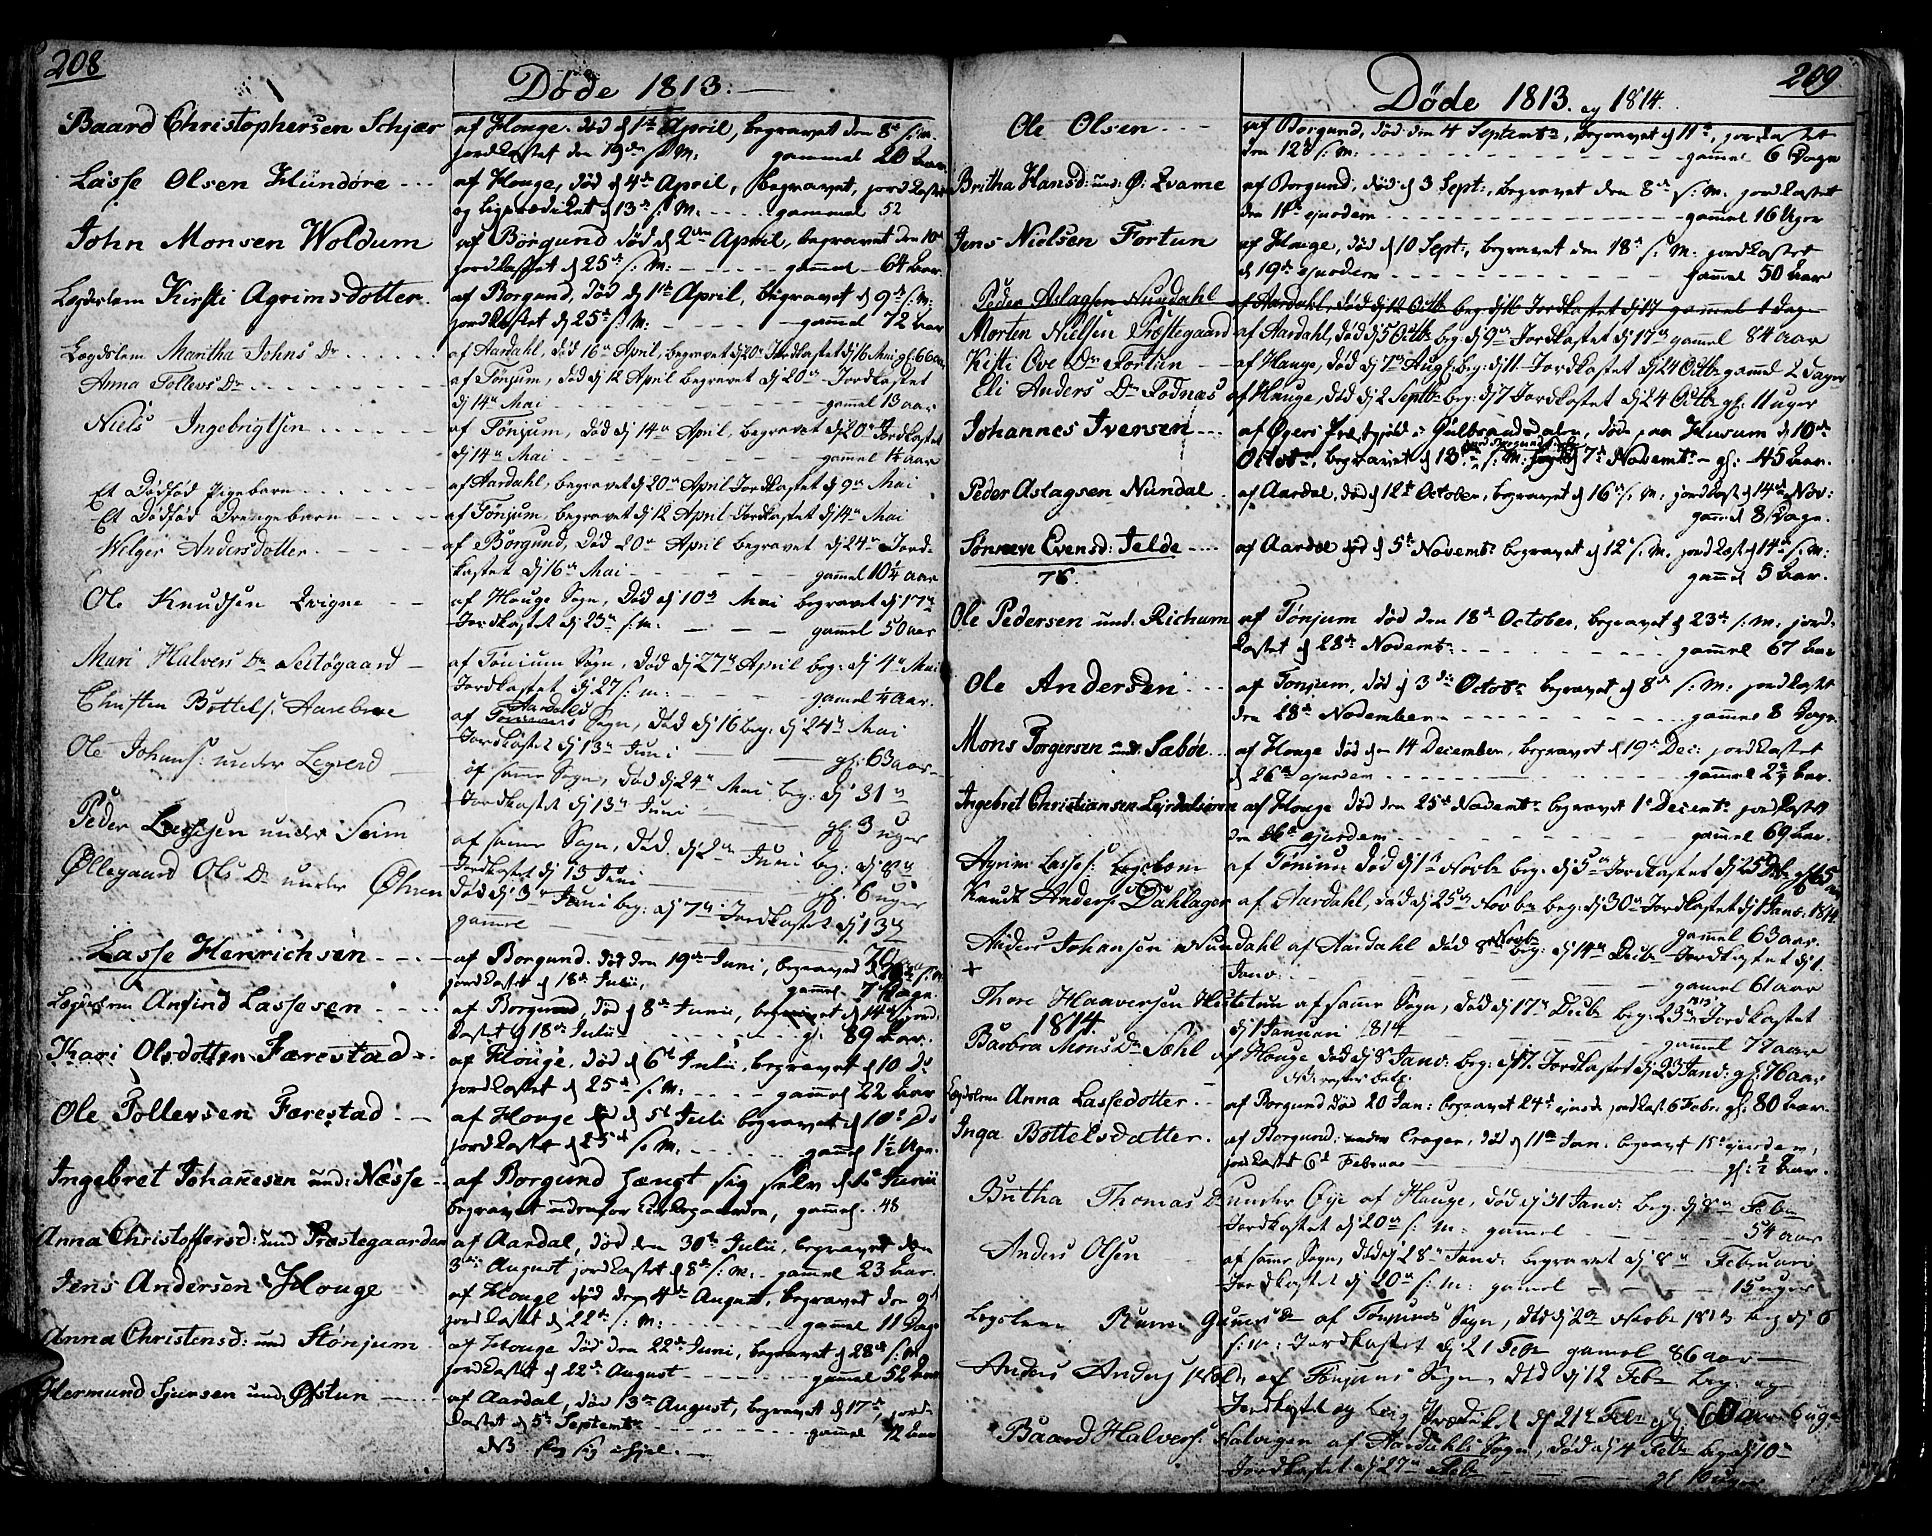 208
Døde 1813.
Baard Christophersen Schjær af Houge. død d 1ste April, begravet den 8de s: m.
jordkastet den 19de s. M: gammel 20 Aar
Lasse Olsen Hundøre af Houge, død d 4de April, begravet, jordkastet
og ligprædiket d 13de s. M. gammel 52
John Monsen Woldum af Borgund død d 2den April, begravet den 10de
jordkastet d 25de s. M: gammel 64 Aar.
Lægdslem Kirsti Agrimsdotter. af Borgund, død d 1ste April, begravet d 9de s. M:
jordkastet d 25de s: M: gammel 72 Aar
Lægdslem Maritha Johns Dr af Aardahl, død 16de April, begravet d 20de Jordkastet d 16 Mai gl. 66 aar
Anna Tollevs Dr af Tønjum, død d 12 April begravet dj 20de Jordkastet
dj 14de Mai gamel 13 aar
Niels Ingebrigtsen af Tønjum, død dj 14de April, begravet dj 20de Jordkastet
dj 14de Mai gamel 1½ aar
Et Dødfød Pigebarn af Aardahl, begravet dj 20de April Jordkastet dj 9de Mai
Et Dødfød Drengebarn af Tønjum, begravet dj 12 April Jordkastet dj 14de Mai
Welger Andersdotter. af Borgund, død 20de April begravet dj 24de Jord-
kastet dj 16de Mai gammel 10¼ aar
Ole Knudsen Qvigne af Houge Sogn, død dj 10de Mai begravet dj 17de
Jordkastet dj 23de s: m: gammel 50 aar
Mari Halvers Dr Seltøgaard af Tønium Sogn, død dj 27de April beg: dj 4de Mai
Jordkastet dj 27 s: m: gammel ¼ aar.
Christen Bottels. Aarebroe af Aardals Sogn, død dj 16 beg: dj 24de Mai
Jordkastet dj 13de Juni gl: 63 aar
Ole Johans: under Legreid af samme Sogn, død dj 24de Mai beg: dj 31te
Jordkastet dj 13de Juni gl: 3 uger
Peder Lassesen under Seim af samme Sogn, død dj 2den Juni beg: dj 8de
Jordkastet dj 13 Juni gl: 6 uger
Øllegaard Ols Dr under Øhren død dj 3de Juni beg: dj 7de Jordkastet dj 13de
gammel 70 aar
Lasse Henrichsen af Borgund. død den 19de Juni, begravet s: M.
jordkastet d 18de Julii, gammel 7 Dage.
Lægdslem Anfind Lassesen af Borgund, død d 8de Junii, begravet d 14de jord-
kastet d 18de Julii g. 89 Aar.
Kari Olsdotter Færestad af Houge, død d 6te Julii, begravet d 10 Do
jordkastet d 25de s. M. gammel 22 Aar
Ole Tollevsen Færestad af Houge død d 5te Julii begravet d 10de Do
jordkastet d 25de s. M. gammel 1½ Uge.
Ingebret Johanesen und: Næsse af Borgund hængt sig selv d 1te Junii
begravet udenfor Kirkegaarden, gammel. 48
Anna Christoffersd: und Præstegaarden af Aardal, død den 30te Julii, begravet den
3die August jordkastet d 8de s: M: gammel 23 Aar.
Jens Andersen Houge af Houge død den 4de August, begravet den 9de
jordkastet d 22de s: M: gammel 11 Dage
Anna Christensd: und Stønjum af Houge død den 22de Juni, begravet d 28de s: M
jordkastet d 22de August gammel 52 Aar
Hermund Sjursen und. Øfstun af Aardal, død 13de August, begravet d 17de, jord-
kastet d 5te Septembr gammel 42 Aar
NB. slog sig ihjel.
209
Døde 1813. og 1814.
Ole Olsen af Borgund, død den 4 Septembr, begravet d 11te, jordkastet
den 12te s: M: gammel 6 Dage
Britha Hansd: und: Ø: Qvame af Borgund, død d 3 Sept:, begravet den 8de s: M. jordkastet
den 11te ejusdem gammel 16 Uger
Jens Nielsen Fortun af Houge, død d 10 Sept: begravet den 18de s. M. jordkastet
d 19de ejusdem gammel 50 Aar
Peder Aslagsen Nundahl af Aardahl, død dj 12 Octb beg dj 16 Jordkastet dj 17 gammel 1 dage
Morten Nielsen Præstegaard af Aardahl, død dj 5 Octb beg: dj 9de Jordkastet dj 17de gammel 84 aar
Kisti Ove Dr Fortun af Hauge, død dj 7de Aug. beg: dj 11 Jordkastet dj 24 Octb gammel 2 dager
Eli Anders Dr Fodnas af Hauge, død dj 2 Septb beg: dj 7 Jordkastet dj 24 Octb gl: 11 uger
Johannes Iversen af Øyers Præstgjeld i Gulbrandsdalen, døde paa Husum d 10de
Octobr, begravet d 13de s: M: d 7de Novembr gl: 45 Aar.
Peder Aslagsen Nundal af Aardal, død d 12te October, begravet d 16de s. M. jordkast d 14de Nov:
gammel 8 Dage.
Sønneve Evensd: Jelde af Aardal død d 5te Novembr begravet d 12te s. M. jordkast d 14de s. M:
76. gammel 5 Aar.
Ole Pedersen und: Richum af Tønjum død den 18de October, begravet d 23de s: M: jord-
kastet d 28de Novembr gammel 67 Aar
Ole Andersen af Tonjum, død d 3die Octobr begravet d 8de s: M: jordkastet
den 28de November gammel 8 Dage.
Mons Torgersen und. Sæbøe af Houge død den 14 December, begravet d 19de Dec: jordkastet
d 26de ejusdem gammel 2¼ Aar.
Ingebret Christiansen Lejrdalsøren af Houge død den 25de Novembr begravet 1te Decembr jordkastet
den 26de ejusdem gammel 69 Aar.
Agrim Lasses: Legslem af Tønium død dj 1te Novbr beg. dj 5te Jordkastet dj 25 Dcb gl 65 aar
Knudt Anders: Dahlager af Aardahl, død dj 25de Novbr beg: dj 30te Jordkastet dj 1 Janv: 1814
gammel 63 aar.
Anders Johansen Nundahl af Aardahl død 8de Novbr beg: dj 14de Decbr Jordkastet dj 1.
+ Janv: gammel 61 aar
Thore Haaversen Hestetun af samme Sogn, død dj 17de Decbr beg: 23de 1813 Jordkastet
dj 1 Januari 1814 gammel 77 aar
1814.
Barbra Mons Dr Sæhl af Houge død dj 8de Janv: beg: dj 17. Jordkastet dj 23 Janv: gl: 76 aar
Legdslem Anna Lassedotter af Borgund død 20 Jan: begravet 24de ejusd jordkast 6 Febr. gl: 80 Aar.
Inga Bottelsdatter. af Borgund: under Erager, død d 11te Jan: begravet 15de ejusdem,
jordkastet 6te Februar gl: ½ Aar.
Britha Thomas Dr under Øye af Hauge, død dj 31 Janv: beg: dj 8de Febr
Jordkastet dj 20de s: M: gammel 54 aar
Anders Olsen af samme Sogn, død dj 28de Janv: begravet dj 8de Februari
Jordkastet dj 20de s: m: gammel 15 uger
Legslem Gunnis Dr af Tønjums Sogn, død dj 2den 1813 beg dj 6
s: m: Jordkastet dj 21 Febr gammel 86 aar
Anders Anders af Tønjums Sogn, død dj 12 Febr beg: og
Jordkastet og Lig Prædiket dj 21de Febr gl: aar 6 uge
Baard Halvers: Natvigen af Aardahls Sogn, død dj 4 Febr beg dj 10de
Jordkastet dj 27de Febr gl uger